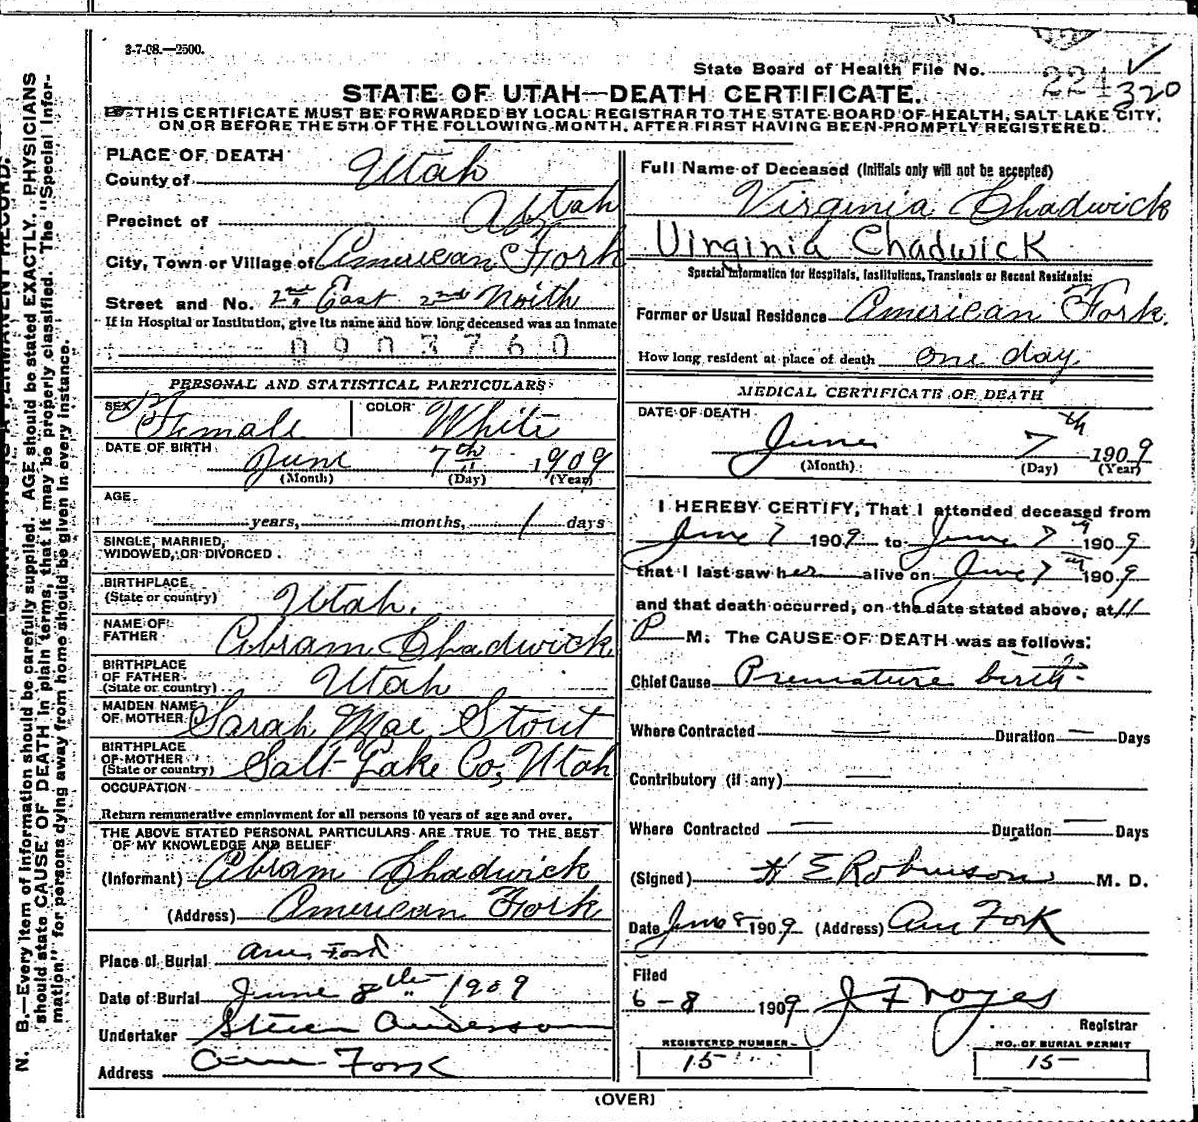 3-7-08.—2500.
State Board of Health File No. 224 320
STATE OF UTAH—DEATH CERTIFICATE.
THIS CERTIFICATE MUST BE FORWARDED BY LOCAL REGISTRAR TO THE STATE BOARD OF HEALTH, SALT LAKE CITY,
ON OR BEFORE THE 5TH OF THE FOLLOWING MONTH, AFTER FIRST HAVING BEEN PROMPTLY REGISTERED.
PLACE OF DEATH
County of Utah
Precinct of Utah
City, Town or Village of American Fork
Street and No. 2nd East 2nd North
If in Hospital or Institution, give its name and how long deceased was an inmate
0903760
PERSONAL AND STATISTICAL PARTICULARS
SEX Female COLOR White
DATE OF BIRTH June 7th 1909
(Month) (Day) (Year)
AGE
years, months, 1 days
SINGLE, MARRIED,
WIDOWED, OR DIVORCED
BIRTHPLACE
(State or country) Utah.
NAME OF
FATHER Abram Chadwick
BIRTHPLACE
OF FATHER
(State or country) Utah
MAIDEN NAME
OF MOTHER Sarah Mae Stout
BIRTHPLACE
OF MOTHER
(State or country) Salt Lake Co, Utah
OCCUPATION
Return remunerative employment for all persons 10 years of age and over.
THE ABOVE STATED PERSONAL PARTICULARS ARE TRUE TO THE BEST
OF MY KNOWLEDGE AND BELIEF
(Informant) Abram Chadwick
(Address) American Fork
Place of Burial Am Fork
Date of Burial June 8th 1909
Undertaker Steen Anderson
Address Am Fork
Full Name of Deceased (Initials only will not be accepted)
Virginia Chadwick
Virginia Chadwick
Special Information for Hospitals, Institutions, Transients or Recent Residents:
Former or Usual Residence American Fork.
How long resident at place of death one day
MEDICAL CERTIFICATE OF DEATH
DATE OF DEATH
June 7th 1909
(Month) (Day) (Year)
I HEREBY CERTIFY, That I attended deceased from
June 7 1909 to June 7th 1909
that I last saw her alive on June 7th 1909
and that death occurred, on the date stated above, at 11
P M. The CAUSE OF DEATH was as follows:
Chief Cause Premature birth
Where Contracted — Duration — Days
Contributory (if any) —
Where Contracted — Duration — Days
(Signed) H E Robinson M. D.
Date June 8 1909 (Address) Am Fork
Filed
6-8 1909 J F Noyes
Registrar
REGISTERED NUMBER
15
NO. OF BURIAL PERMIT
15
(OVER)
N. B.—Every item of information should be carefully supplied. AGE should be stated EXACTLY. PHYSICIANS
should state CAUSE OF DEATH in plain terms, that it may be properly classified. The "Special Infor-
mation" for persons dying away from home should be given in every instance.